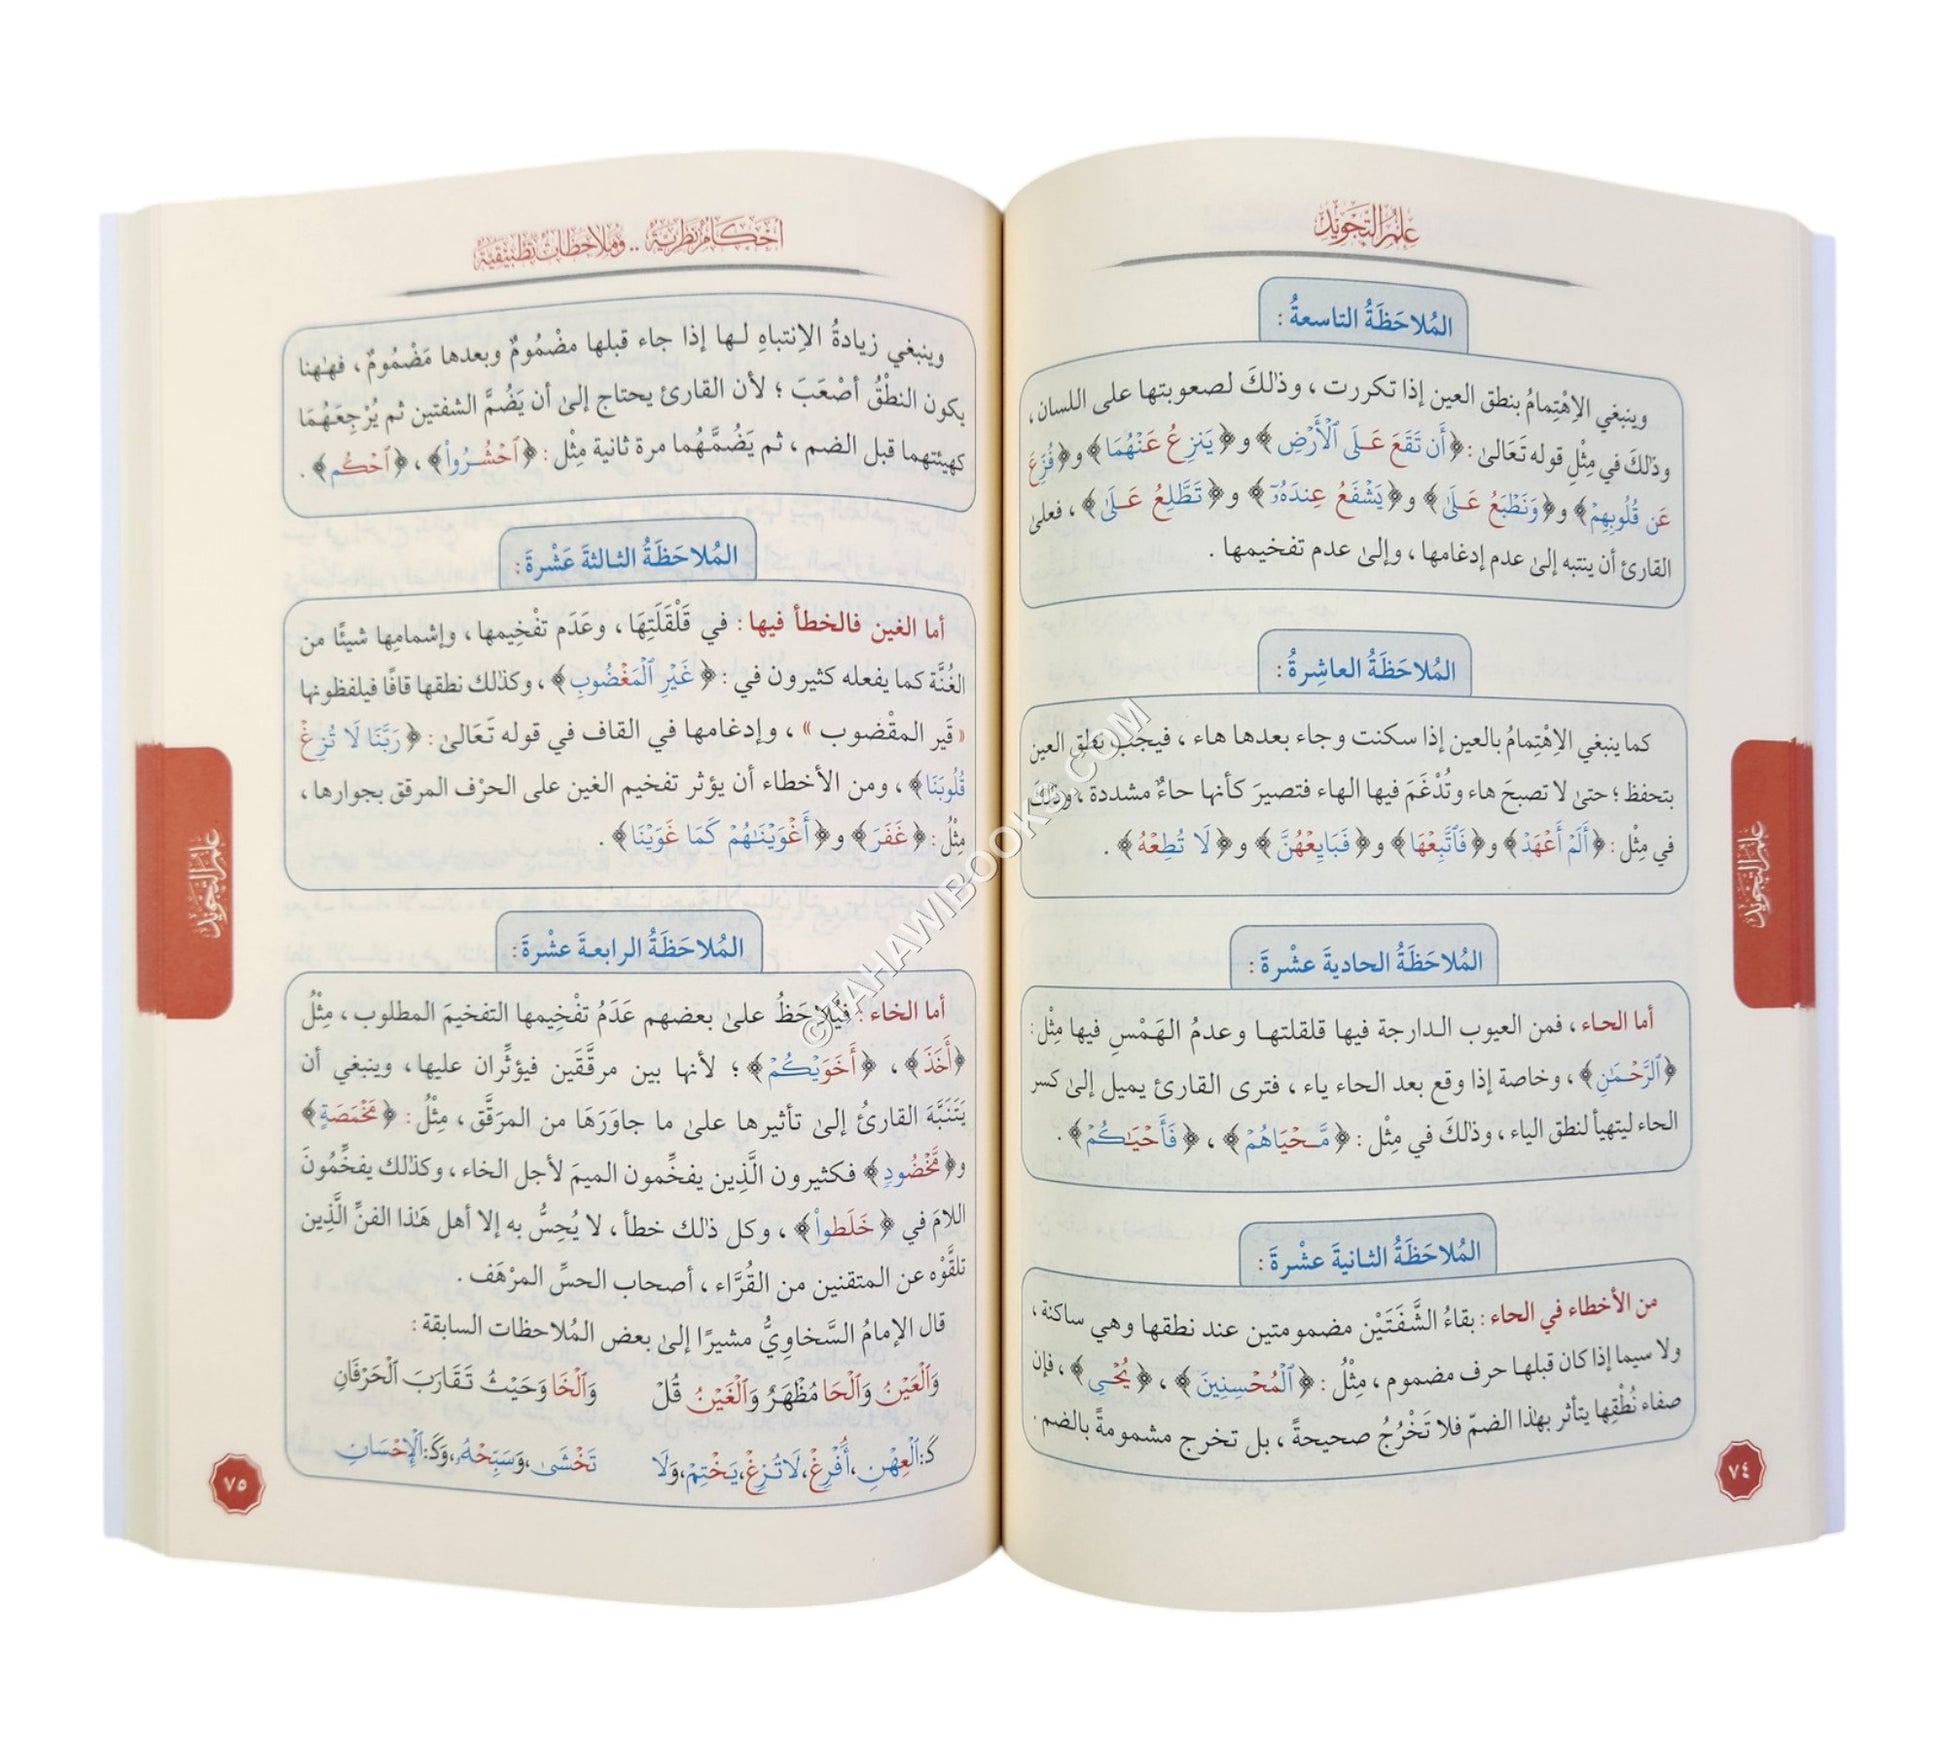 علم التجويد
المُلاحَظَةُ التاسعةُ :
وينبغي الاِهْتِمامُ بنطق العين إذا تكررت ، وذٰلكَ لصعوبتها على اللسان ،
وذٰلكَ في مِثْلِ قوله تَعَالىٰ : ﴿أَن تَقَعَ عَلَى ٱلْأَرْضِ﴾ و﴿يَنزِعُ عَنْهُمَا﴾ و﴿فُزِّعَ
عَن قُلُوبِهِمْ﴾ و﴿وَنَطْبَعُ عَلَىٰ﴾ و﴿يَشْفَعُ عِندَهُۥٓ﴾ و﴿تَطَّلِعُ عَلَىٰ﴾ ، فعلى
القارئ أن ينتبه إلىٰ عدم إدغامها ، وإلىٰ عدم تفخيمها .
المُلاحَظَةُ العاشِرةُ :
كما ينبغي الاِهْتِمامُ بالعين إذا سكنت وجاء بعدها هاء ، فيجب نطق العين
بتحفظ ؛ حتىٰ لا تصبحَ هاء وتُدْغَمَ فيها الهاء فتصيرَ كأنها حاءٌ مشددة ، وذٰلكَ
في مِثْل : ﴿أَلَمْ أَعْهَدْ﴾ و﴿فَٱتَّبِعْهَا﴾ و﴿فَبَايِعْهُنَّ﴾ و﴿لَا تُطِعْهُ﴾ .
المُلاحَظَةُ الحاديةَ عشْرةَ :
أما الحاء ، فمن العيوب الدارجة فيها قلقلتها وعدمُ الهَمْسِ فيها مِثْل :
﴿ٱلرَّحْمَٰنِ﴾ ، وخاصة إذا وقع بعد الحاء ياء ، فترى القارئ يميل إلىٰ كسر
الحاء ليتهيأ لنطق الياء ، وذٰلكَ في مِثْل : ﴿مَّحْيَاهُمْ﴾ ، ﴿فَأَحْيَٰكُمْ﴾ .
المُلاحَظَةُ الثانيةَ عشْرةَ :
من الأخطاء في الحاء : بقاءُ الشَّفَتَيْن مضمومتين عند نطقها وهي ساكنة ،
ولا سيما إذا كان قبلها حرف مضموم ، مِثْلُ : ﴿ٱلْمُحْسِنِينَ﴾ ، ﴿يُحْيِي﴾ ، فإن
صفاء نُطْقِها يتأثر بهٰذا الضمّ فلا تَخْرُجُ صحيحةً ، بل تخرج مشمومةً بالضم .
علم التجويد
٧٤
أحكام نظرية .. وملاحظات تطبيقية
وينبغي زيادةُ الاِنتباهِ لها إذا جاء قبلها مضْمُومٌ وبعدها مَضْمُومٌ ، فهٰهنا
يكون النطْقُ أصْعَبَ ؛ لأن القارئ يحتاج إلىٰ أن يَضُمَّ الشفتين ثم يُرْجِعَهُمَا
كهيئتهما قبل الضم ، ثم يَضُمَّهُما مرة ثانية مِثْل : ﴿ٱحْشُرُوا۟﴾ ، ﴿ٱحْكُم﴾ .
المُلاحَظَةُ الثالثةَ عَشْرةَ :
أما الغين فالخطأ فيها : في قَلْقَلَتِهَا ، وعَدَم تفْخِيمها ، وإشمامِها شيئًا من
الغُنَّة كما يفعله كثيرون في : ﴿غَيْرِ ٱلْمَغْضُوبِ﴾ ، وكذٰلك نطقها قافًا فيلفظونها
« قَير المقْضوب » ، وإدغامها في القاف في قوله تَعَالىٰ : ﴿رَبَّنَا لَا تُزِغْ
قُلُوبَنَا﴾ ، ومن الأخطاء أن يؤثر تفخيم الغين على الحرْف المرقق بجوارها ،
مِثْلُ : ﴿غَفَرَ﴾ و﴿أَغْوَيْنَٰهُمْ كَمَا غَوَيْنَا﴾ .
المُلاحَظَةُ الرابعةَ عشْرةَ :
أما الخاء : فيُلاحَظُ علىٰ بعضهم عَدَمُ تفْخِيمها التفخيمَ المطلوب ، مِثْلُ
﴿أَخَذَ﴾ ، ﴿أَخَوَيْكُمْ﴾ ؛ لأنها بين مرقَّقَين فيؤثِّران عليها ، وينبغي أن
يَتَنَبَّهَ القارئُ إلىٰ تأثيرها علىٰ ما جاوَرَهَا من المرَقَّق ، مِثْلُ : ﴿مَخْمَصَةٍ﴾
و﴿مَّخْضُودٍ﴾ فكثيرون الَّذِين يفخِّمون الميمَ لأجل الخاء ، وكذٰلك يفخِّمُونَ
اللامَ في ﴿خَلَطُوا۟﴾ ، وكل ذٰلك خطأ ، لا يُحِسُّ به إلا أهل هَٰذا الفنِّ الَّذِين
تلقَّوْه عن المتقنين من القُرَّاء ، أصحاب الحسِّ المرْهَف .
قال الإمامُ السَّخاوِيُّ مشيرًا إلىٰ بعض المُلاحظات السابقة :
وَٱلْعَيْنُ وَٱلْحَا مُظْهَرٌ وَٱلْغَيْنُ قُلْ وَٱلْخَا وَحَيْثُ تَقَارَبَ ٱلْحَرْفَانِ
كَـ : ٱلْعِهْنِ ، أَفْرِغْ ، لَا تُزِغْ ، يَخْتِمْ ، وَلَا تَخْشَىٰ ، وَسَبِّحْهُ ، وَكَـ : ٱلْإِحْسَانِ
علم التجويد
٧٥
©TAHAWIBOOKS.COM